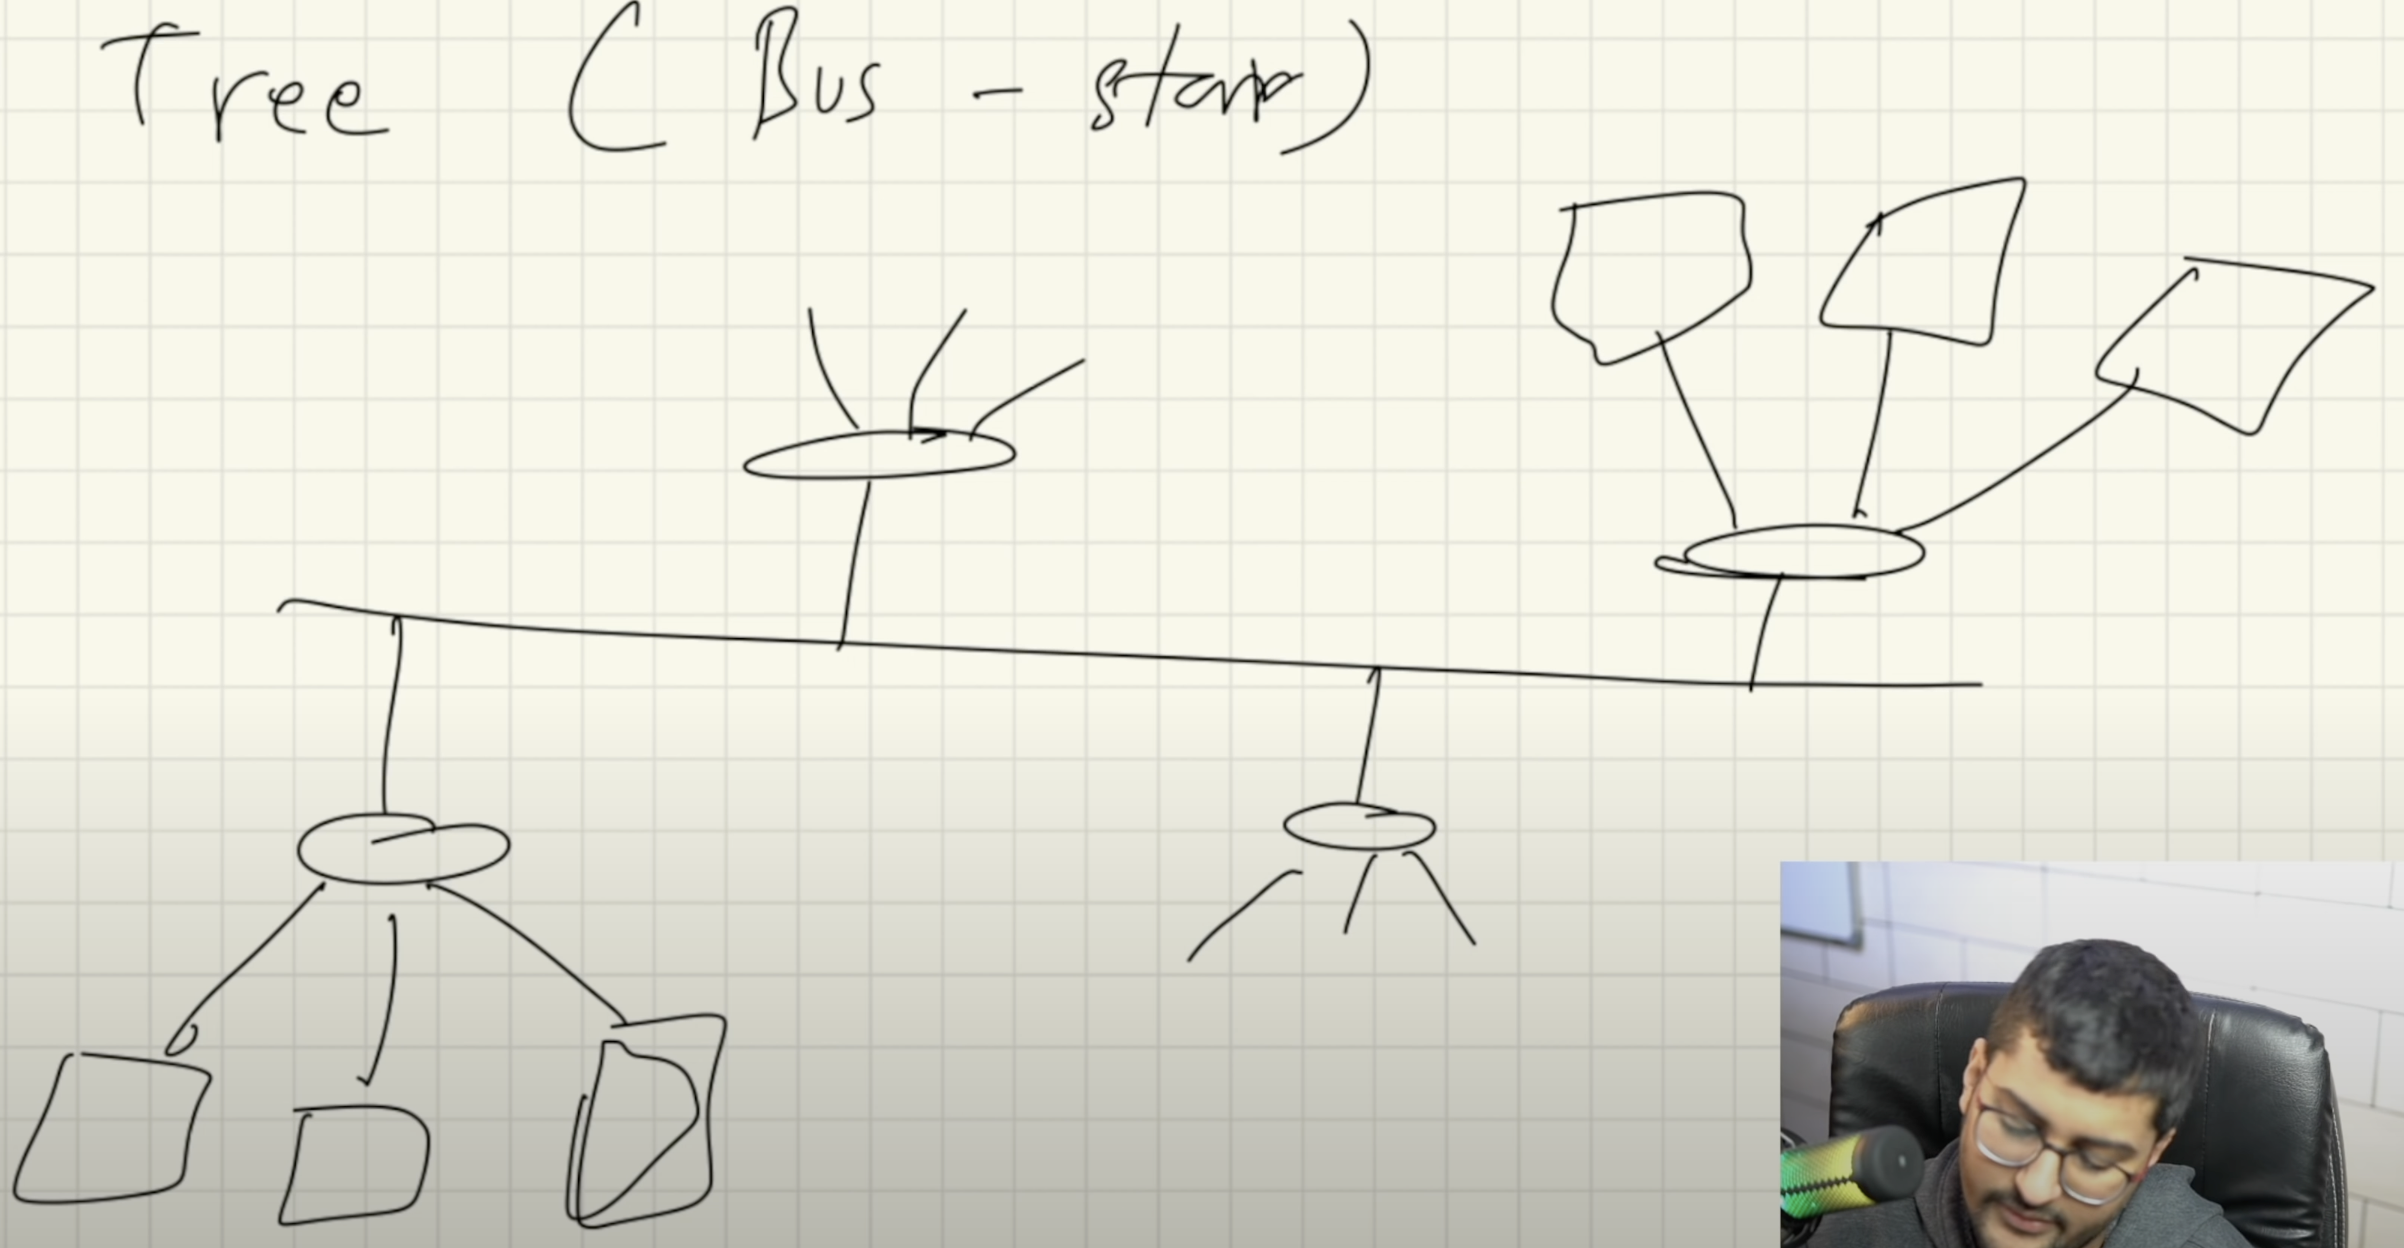 Tree ( Bus - star)